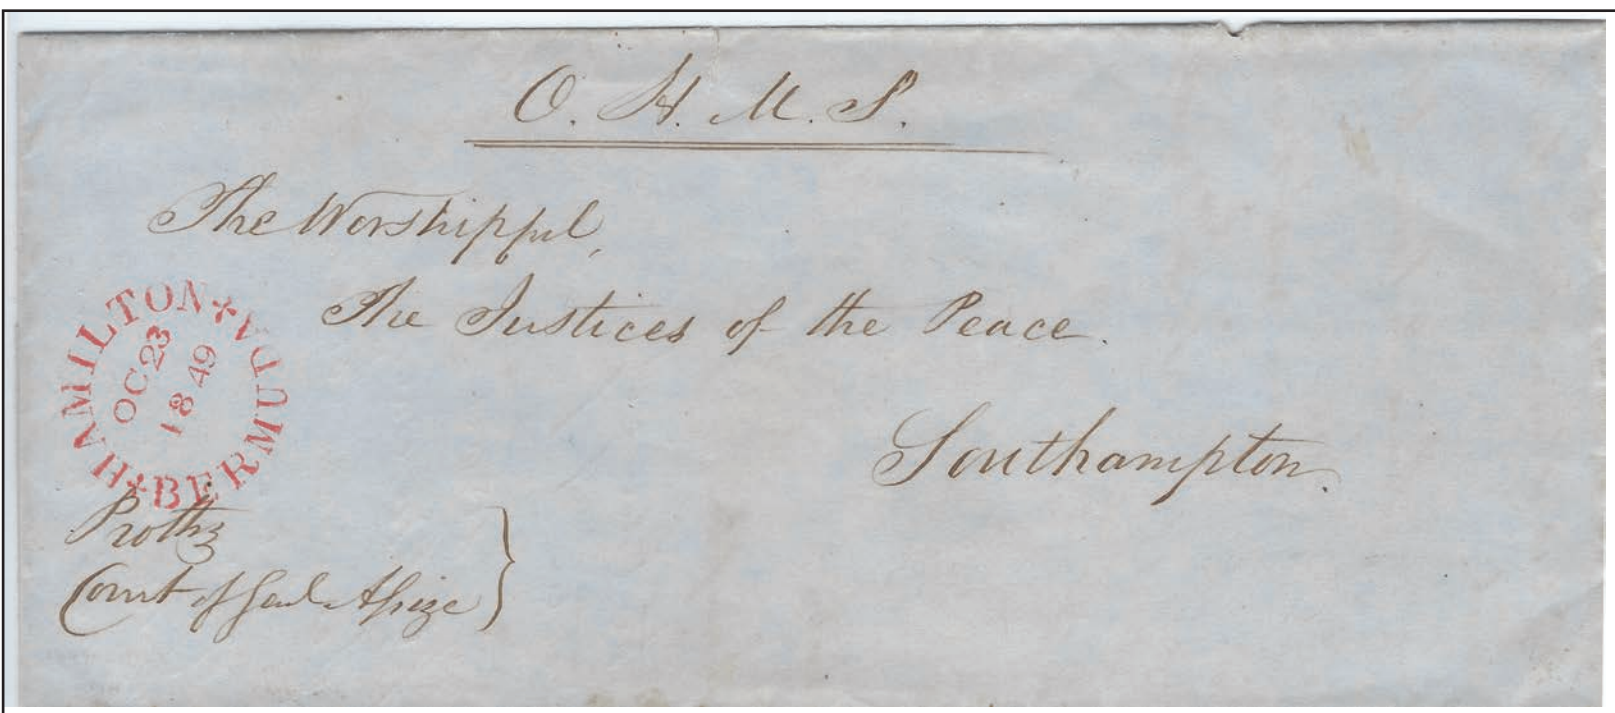 O. H. M. S.
The Worshipful,
The Justices of the Peace.
Southampton.
HAMILTON
BERMUDA
OC 23
1849
Court of Genl Assize